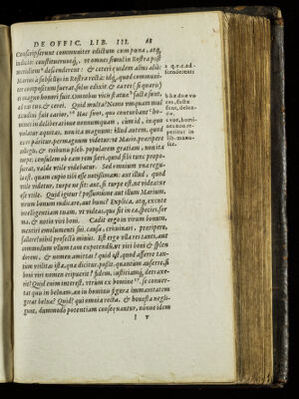 DE OFFIC. LIB. III.
conscripserunt communiter edictum cum pœna, atq;
iudicio: constitueruntq́;, ut omnes simul in Rostra post
meridiem descenderent: & ceteri quidem alius alio:
Marius ab subsellijs in Rostra recta: idq́;, quod communi-
ter compositum fuerat, solus edixit & ea res (si quæris)
ei magno honori fuit. Omnibus vicis statuæ factæ sunt:
ad eas tus, & cerei. Quid multa? Nemo unquam mul
titudini fuit carior.
bant ho-
mines in deliberatione nonnunquam, cum id, in quo
violatur æquitas, non ita magnum: illud autem, quod
ex eo paritur, permagnum videtur: ut Mario, præripere
collegis, & tribunis pleb. popularem gratiam, non ita
turpe: consulem ob eam rem fieri, quod sibi tunc propo-
suerat, valde utile videbatur. Sed omnium una regula
est, quam cupio tibi esse notissimam: aut illud, quod
utile videtur, turpe ne sit: aut, si turpe est, ne videatur
esse utile. Quid igitur? possumusne aut illum Marium,
virum bonum iudicare, aut hunc? Explica, atq́; excute
intelligentiam tuam, ut videas, quæ sit in ea species, for
ma, & notio viri boni. Cadit ergo in virum bonum,
mentiri emolumenti sui causa, criminari, præripere,
fallere? nihil profecto minus. Est ergo ulla res tanti, aut
commodum ullum tam expetendum, ut viri boni & splen
dorem, & nomen amittas? quid est, quod afferre tan-
tum utilitas ista, quæ dicitur, possit, quantum auferre, si
boni viri nomen eripuerit? fidem, iustitiamq́;, detraxe-
rit? Quid enim interest, utrum ex homine
se conver-
tat quis in beluam, an in hominis figura immanitatem
gerat beluæ? Quid? qui omnia recta, & honesta negli-
gunt, dummodo potentiam consequantur, nonne idem